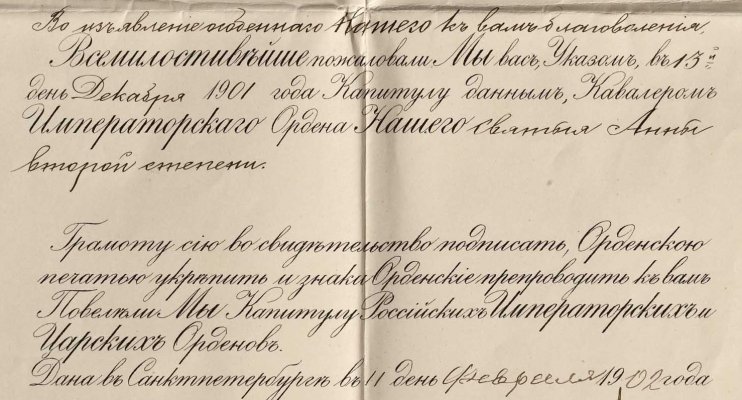 Во изъявленіе особеннаго Нашего къ вамъ благоволенія,
Всемилостивѣйше пожаловали Мы васъ, Указомъ, въ 13й
день Декабря 1901 года Капитулу даннымъ, Кавалеромъ
Императорскаго Ордена Нашего Святыя Анны
второй степени.
Грамоту сію во свидѣтельство подписать, Орденскою
печатью укрѣпить и знаки Орденскіе препроводить къ вамъ
Повелѣли Мы Капитулу Россійскихъ Императорскихъ и
Царскихъ Орденовъ.
Дана въ Санктпетербургѣ въ 11 день Февраля 1902 года